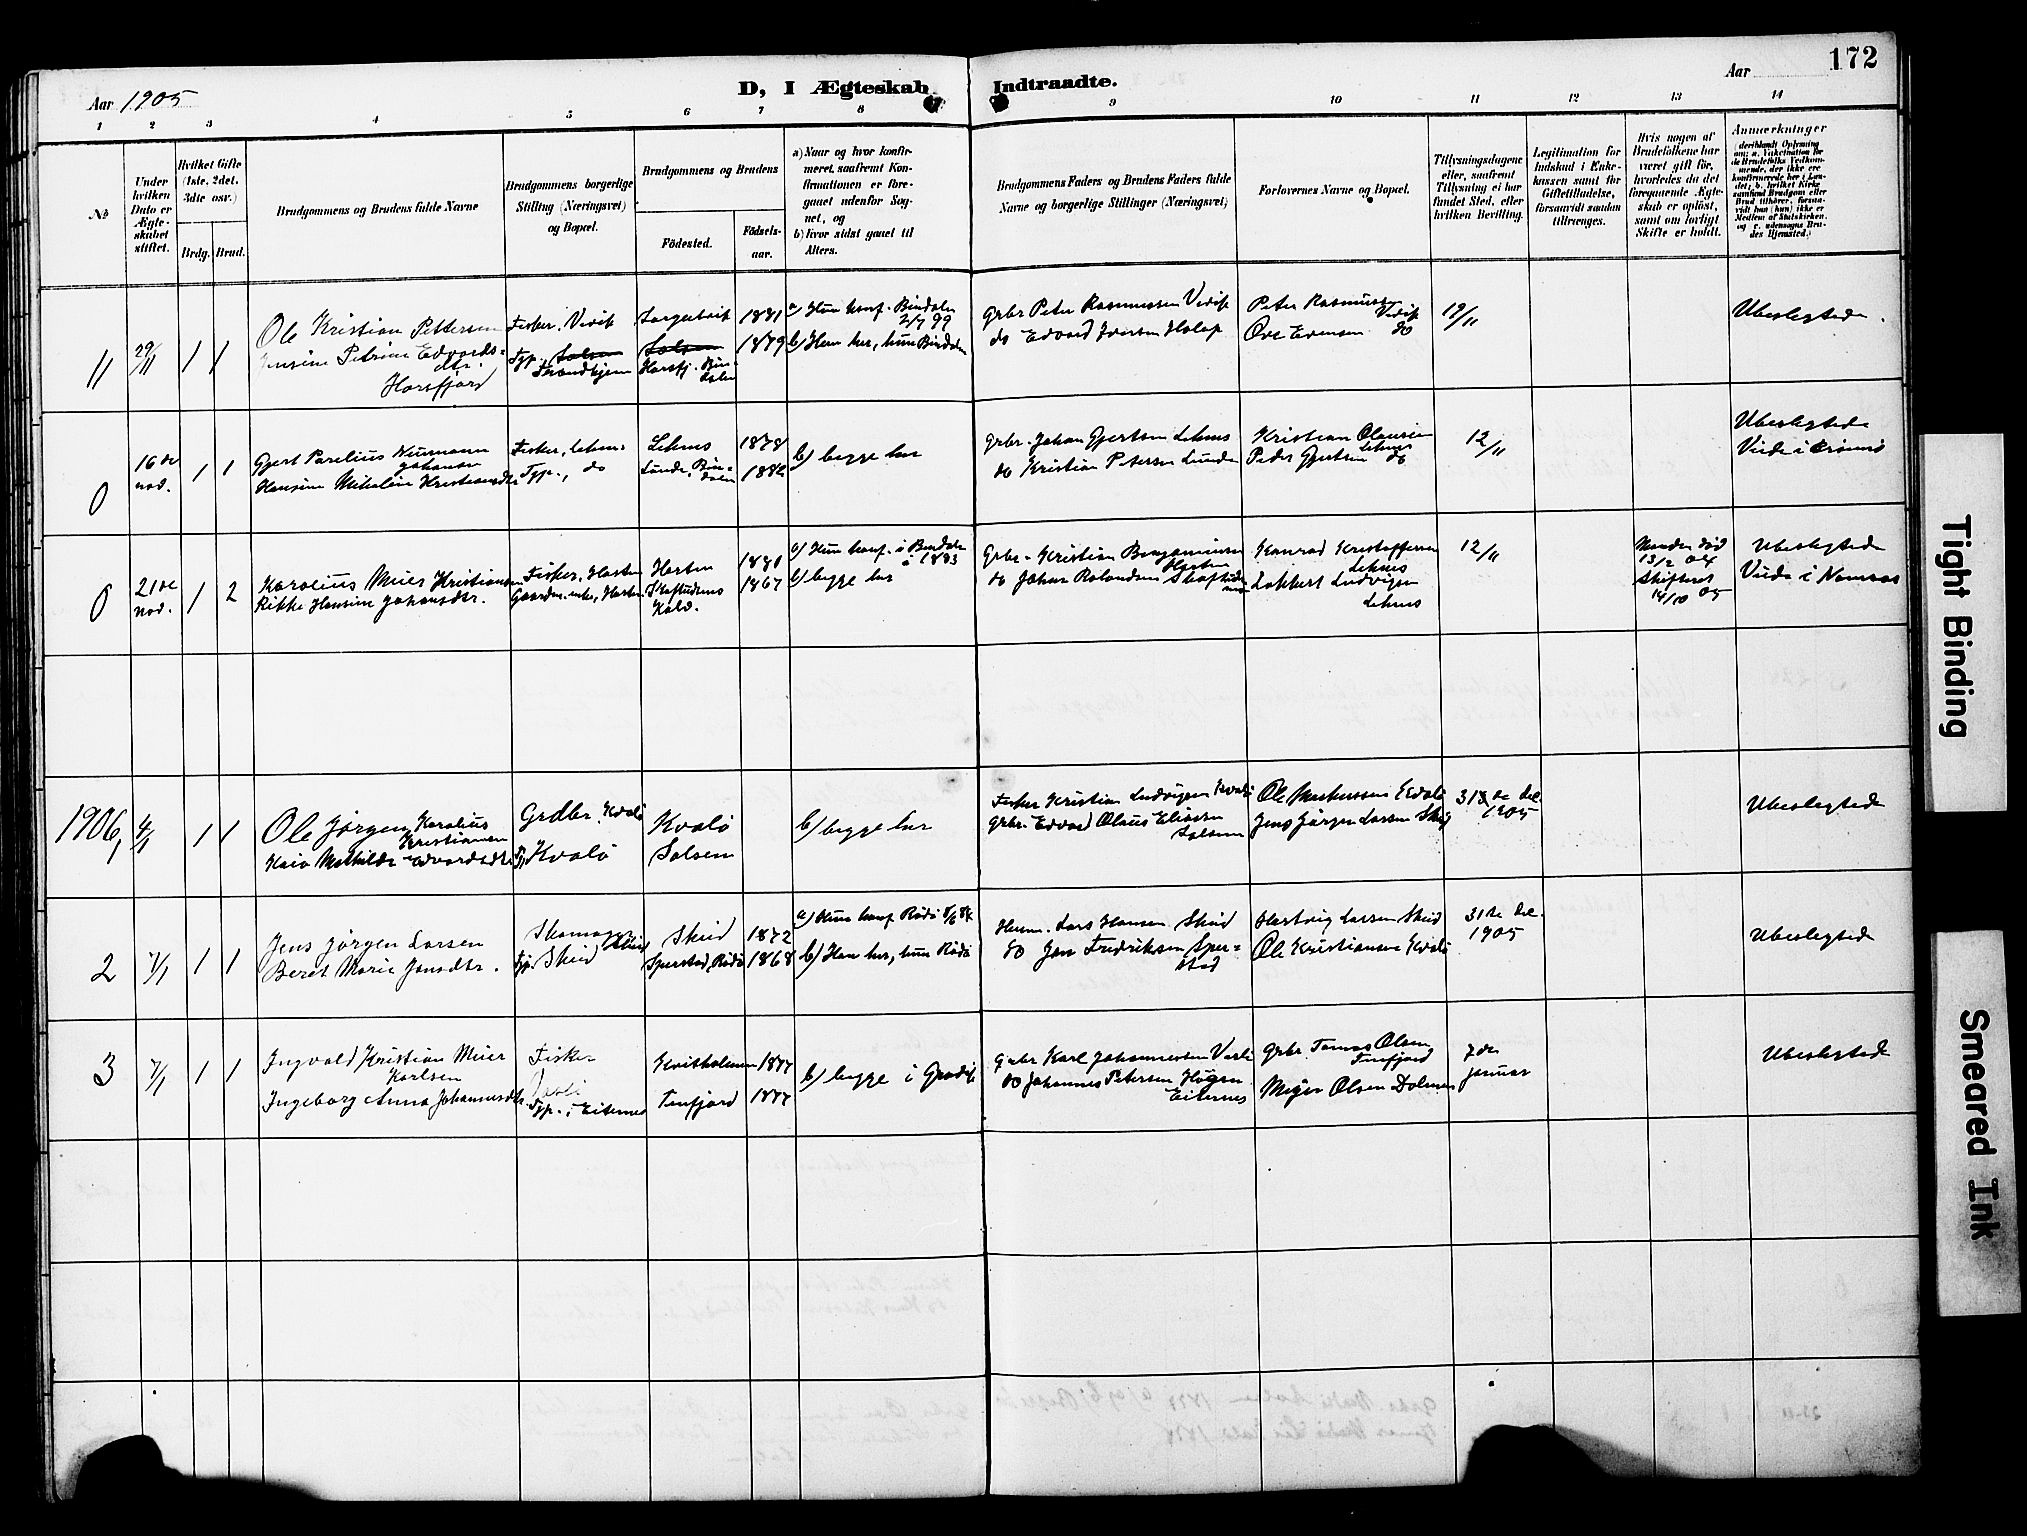 172
Aar 1905
D, I Ægteskab Indtraadte.
Aar
1 2 3 4 5 6 7 8 9 10 11 12 13 14
No
Under hvilken Dato er Ægteskabet stiftet.
Hvilket Gifte (1ste, 2det, 3die osv.)
Brdg. Brud.
Brudgommens og Brudens fulde Navne
Brudgommens borgerlige Stilling (Næringsvei) og Bopæl.
Brudgommens og Brudens
Födested.
Födselsaar.
a) Naar og hvor konfirmeret, saafremt Konfirmationen er foregaaet udenfor Sognet, og
b) hvor sidst gaaet til Alters.
Brudgommens Faders og Brudens Faders fulde Navne og borgerlige Stillinger (Næringsvei)
Forlovernes Navne og Bopæl.
Tillysningsdagene eller, saafremt Tillysning ei har fundet Sted, efter hvilken Bevilling.
Legitimation for Indskud i Enkekassen samt for Giftetilladelse, forsaavidt saadan tiltrænges.
Hvis nogen af Brudefolkene har været gift før, hvorledes da det foregaaende Ægteskab er opløst, samt om lovligt Skifte er holdt.
Anmærkninger
11 29/11 1 1
Ole Kristian Pettersen
Petrine Edvardsdtr.
Horsfjord
Fisker, Vedik
1881
1879
a) Hun konf. Bindalen
2/7 99
b) Han her, hun Bindalen
Grbr Peter Rasmussen Vedik
do Edvard Iversen
Peter Rasmussen Vedik
Ove Edvensen do
19/11
Ubeslegtede.
0 16de nov. 1 1
Gjert Parelius Neumann Johansen
Hansine Mikaline Kristiansdtr
Fisker, Leknes
Typ., do
Leknes 1878
Lunde, Bindalen 1882
b) begge her
Grbr. Johan Gjertsen Leknes
do Kristian Petersen Lunde
Kristian Olausen Leknes
Peder Gjertsen do
12/11
Ubeslegtede
Viede i
0 21de nov. 1 2
Karolius Meier Kristiansen
Rikke Hansine Johansdtr.
Fisker, Horten
Horten 1880
1867
a) Hun konf. i Bindalen
i 1883
b) begge her
Grbr. Kristian Benjaminsen Horten
do Johan Rolandsen
Konrad Kristoffersen Leknes
Lokkert Ludvigsen
Leknes
12/11
Manden död
13/2 04
Skifteret
14/10 05
Ubeslegtede
Viede i Namsos
1906, 1
1 1
Ole Jörgen Karolius Kristiansen
Kaia Mathilde Edvardsdtr
Grdbr. Kvalö
Kvalö
Kvalö
Solsem
b) begge her
Fisker Kristian Ludvigsen Kvalö
Grbr. Edvard Olaus Eliassen
Solsem
Ole Markussen Kvalö
Jens Jörgen Larsen Skei
31te del.
1905
Ubeslegtede
2 7/1 1 1
Jens Jörgen Larsen
Beret Marie Jensdtr.
Skomager, Skeid
Typ. Skeid
Skeid 1872
Sperstad, Rödö 1868
a) Hun konf Rödö
b) Han her, hun Rödö
Husm. Lars Hansen Skeid
do Jens Fredriksen Sperstad
Hartvig Larsen Skeid
Ole Kristiansen Kvalö
31te del.
1905
Ubeslegtede
3 7/1 1 1
Ingvald Kristian Meier
Karlsen
Ingeborg Anna Johannesdtr.
Fisker
Typ. i Eiternes
Kvistholmen 1877
Terfjord 1877
b) begge i Gravvik
Grbr Karl Johannesen
do Johannes Petersen Högsn
Eiternes
Grbr. Tomas Olsen
Terfjord
Meyer Olsen Dolmen
7de januar
Ubeslegtede
Tight Binding
Smeared Ink